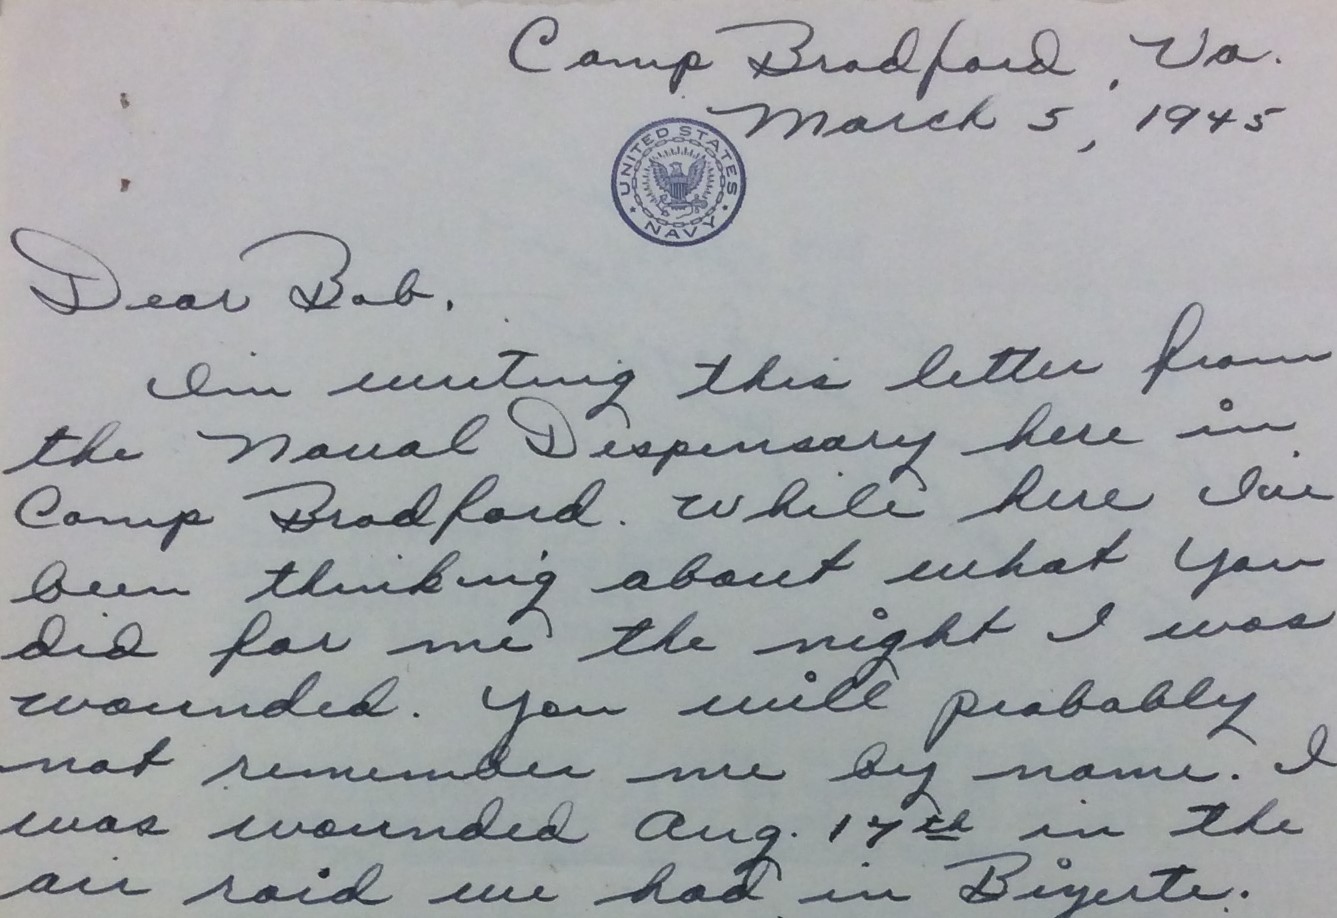 Camp Bradford, Va.
March 5, 1945
UNITED STATES
NAVY
Dear Bob,
I'm writing this letter from
the Naval Dispensary here in
Camp Bradford. While here I've
been thinking about what you
did for me the night I was
wounded. You will probably
not remember me by name. I
was wounded Aug. 17th in the
air raid we had in Bizerte.